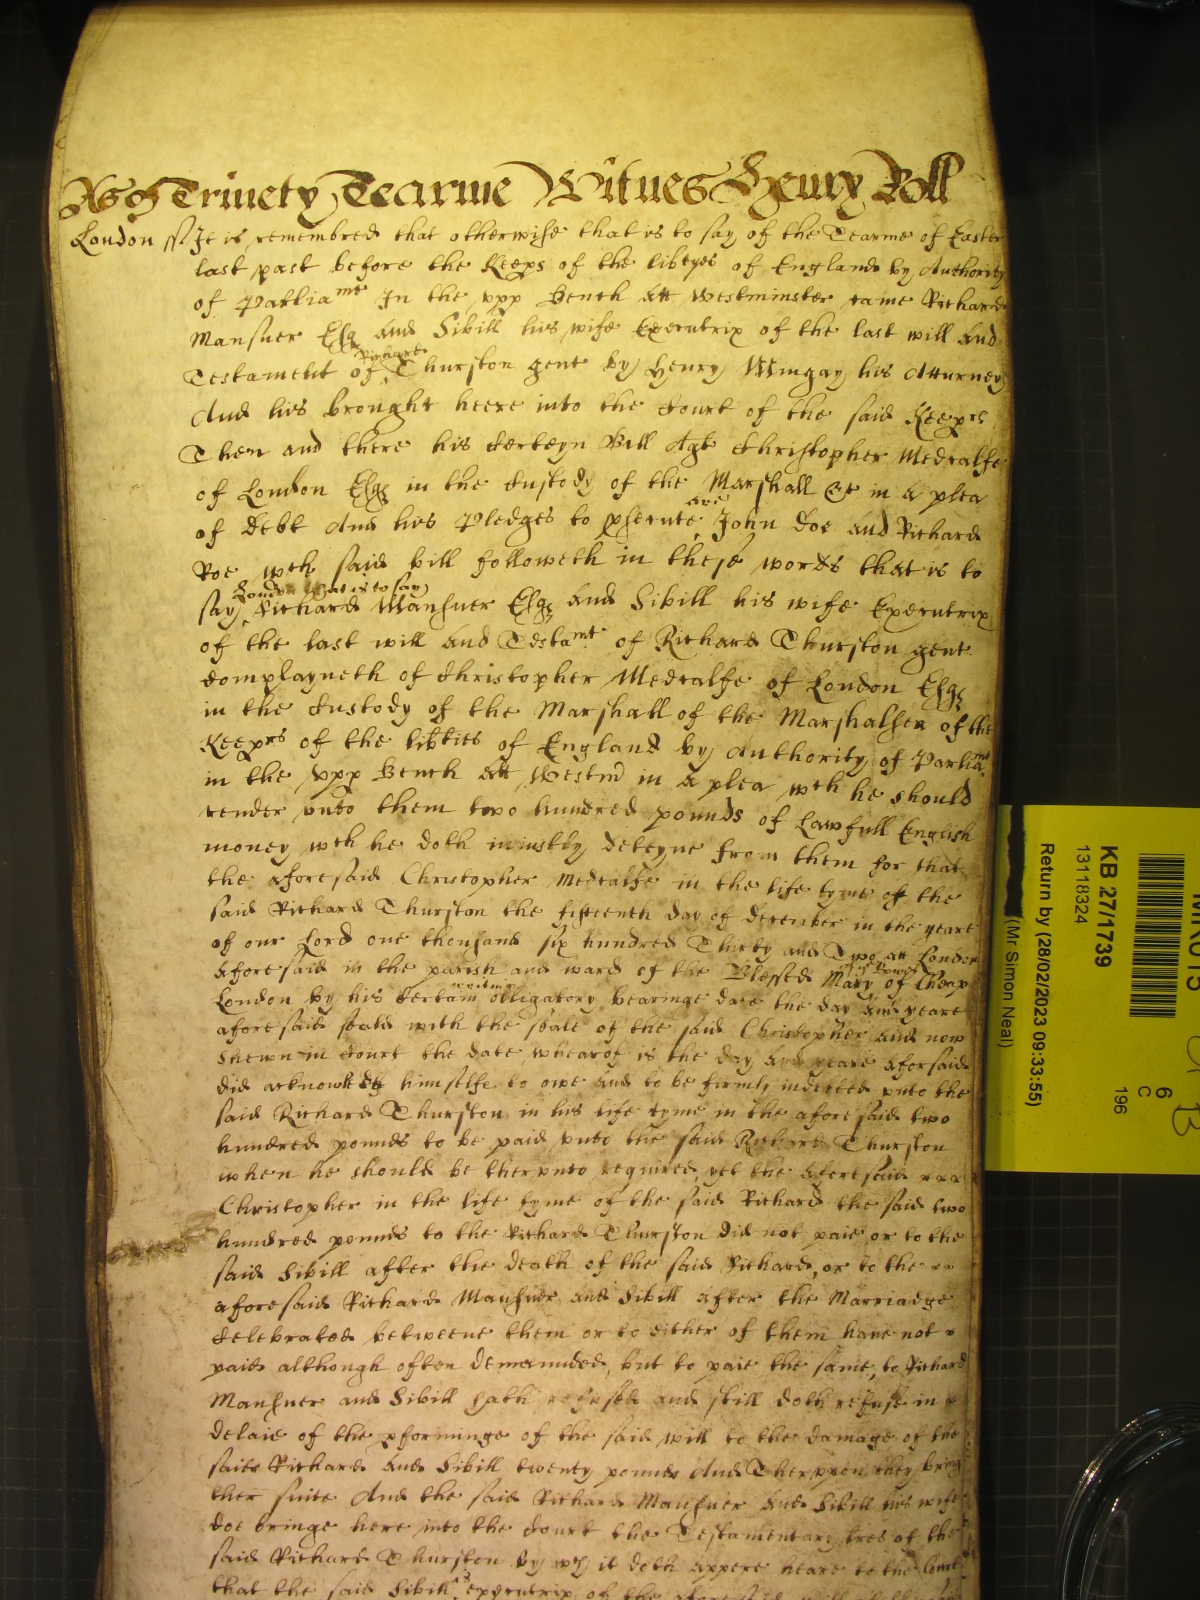 As of Trinety Tearme Witnes Henry Roll
London ss It is remembred that otherwise that is to say of the Tearme of Easter
last past before the Keeps of the libtyes of England by Authority
of Parliamt In the vpp Bench Att Westminster came Richard
Mansuer Esq And Sibill his wife Executrix of the last will And
Testament of Richard Thurston gent by Henry Mingay his Atturney
And his brought heere into the Court of the said Keeprs
Then and there his Certeyn Bill Agt Christopher Medcalfe
of London Esq in the Custody of the Marshall &c in A plea
of debt And his Pledges to psecute are John Doe And Richard
Roe wch said bill followeth in these words that is to
say London that is to say Richard Mansuer Esq And Sibill his wife Executrix
of the last will And Testamt of Richard Thurston gent
Complayneth of Christopher Medcalfe of London Esq
in the Custody of the Marshall of the Marshalsea of the
Keeprs of the libties of England by Authority of Parliamt
in the vpp Bench Att Westm in a plea wch he should
render vnto them two hundred pounds of Lawfull English
money wch he doth iniustly deteyne from them for that
the aforesaid Christopher Medcalfe in the life tyme of the
said Richard Thurston the fifteenth day of December in the yeare
of our Lord one thousand six hundred Thirty and Two att London
Aforesaid in the parish and ward of the Blessed Mary of Cheap
London by his Certain writing obligatory bearinge date the day And yeare
aforesaid seald with the seale of the said Christopher And now
shewn in Court the date whearof is the day And yeare Aforsaid
did acknowledg himselfe to owe And to be firmly indebted vnto the
said Richard Thurston in his life tyme in the aforesaid two
hundred pounds to be paid vnto the said Richard Thurston
when he should be thervnto required yet the Aforesaid
Christopher in the life tyme of the said Richard the said two
hundred pounds to the Richard Thurston did not paie or to the
said Sibill after the death of the said Richard, or to the
aforesaid Richard Mansuer And Sibill after the Marriadge
Celebrated betweene them or to either of them haue not
paid although often demanded, but to paie the same, to Richard
Mansuer and Sibill hath refused and still doth refuse in
delaie of the pforminge of the said will to the damage of the
said Richard And Sibill twenty pounds And Thervppon they bring
ther suite And the said Richard Mansuer And Sibill his wife
doe bringe here into the Court the Testamentary lres of the
said Richard Thurston by wch it doth Appere heare to the Court
that the said Sibill is executrix of the aforesaid will
KB 27/1739
13118324
Return by (28/02/2023 09:33:55)
(Mr Simon Neal)
6
C
196